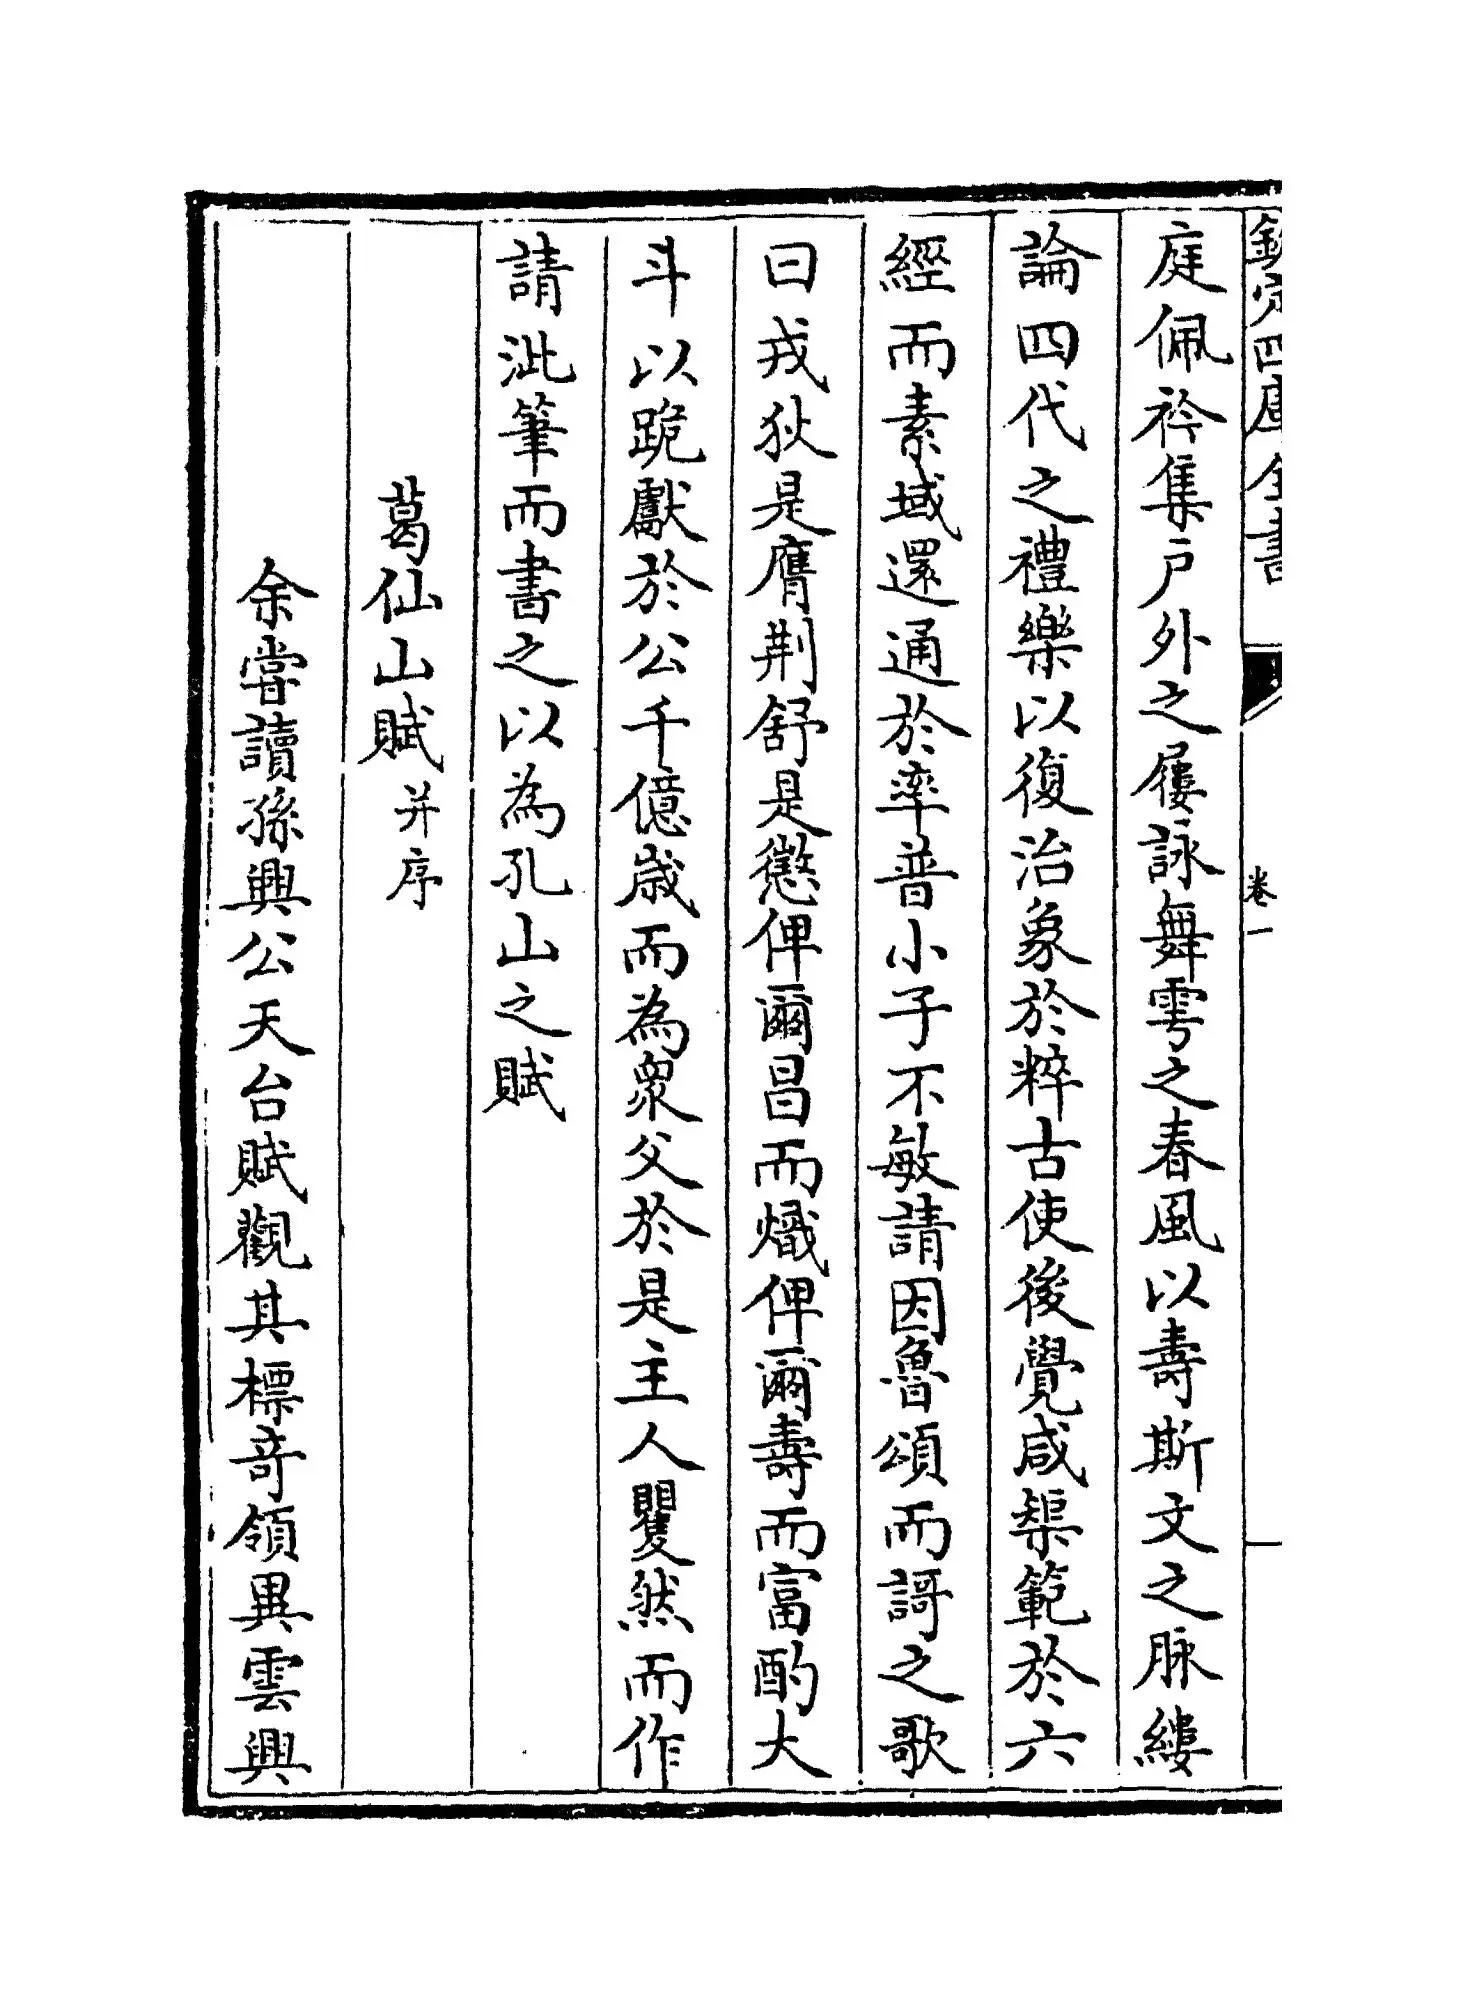 欽定四庫全書
卷一
庭佩衿集戶外之屨詠舞雩之春風以壽斯文之脉縷
論四代之禮樂以復治象於粹古使後覺咸榘範於六
經而素域還通於率普小子不敏請因魯頌而謌之歌
曰戎狄是膺荆舒是懲俾爾昌而熾俾爾壽而富酌大
斗以跪獻於公千億歲而為衆父於是主人瞿然而作
請泚筆而書之以為孔山之賦
葛仙山賦并序
余嘗讀孫興公天台賦觀其標奇領異雲興